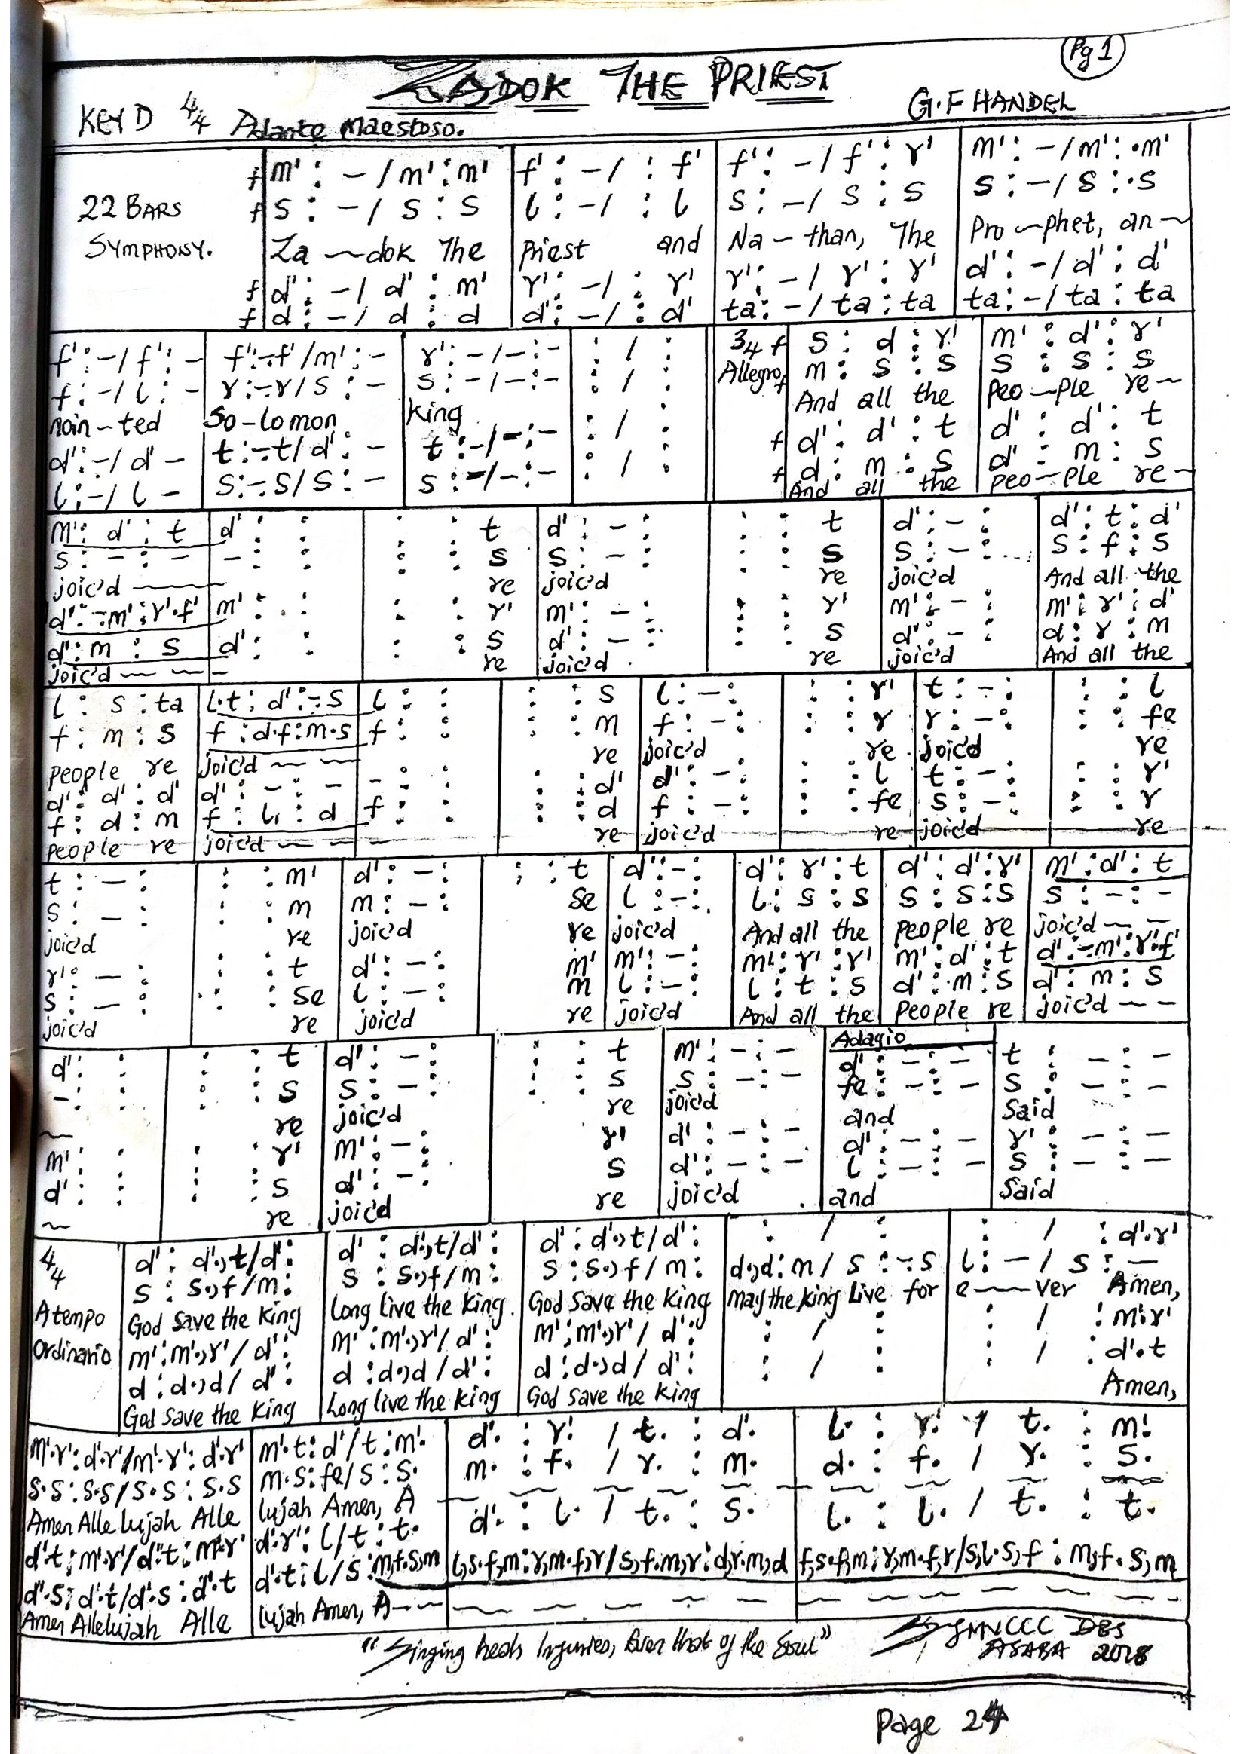 Pg 1
ZADOK THE PRIEST
KEY D 4/4 Adante Maestoso.
G.F HANDEL
f m' : - / m' : m' | f' : - / : f' | f' : - / f' : r' | m' : - / m' : . m'
22 BARS f s : - / s : s | l : - / : l | s : - / s : s | s : - / s : . s
SYMPHONY. Za ~ dok The | Priest and | Na - than, The | Pro ~ phet, an ~
f d' : - / d' : m' | r' : - / : r' | r' : - / r' : r' | d' : - / d' : d'
f d : - / d : d | d' : - / : d' | ta : - / ta : ta | ta : - / ta : ta
f' : - / f' : - | f' : - f' / m' : - | r' : - / - : - | : / : | 3/4 f s : d : r' | m' : d' : r'
f : - / l : - | r : - r / s : - | s : - / - : - | : / : | Allegro f m : s : s | s : s : s
noin - ted | So - lomon | King | And all the | Peo - ple re ~
d' : - / d' - | t : - t / d' : - | t : - / - : - | : / : | f d' : d' : t | d' : d' : t
l : - / l - | s : - s / s : - | s : - / - : - | : / : | f d : m : s | d' : m : s
And all the | Peo - ple re -
m' : d' : t | d' : : | : : t | d' : - : | : : t | d' : - : | d' : t : d'
s : - : - | - : : | : : s | s : - : | : : s | s : - : | s : f : s
joic'd | re | joic'd | re | joic'd | And all the
d' : - m' : r' . f' | m' : : | : : r' | m' : - : | : : r' | m' : - : | m' : r' : d'
d' : m : s | d' : : | : : s | d' : - : | : : s | d' : - : | d : r : m
joic'd | re | joic'd | re | joic'd | And all the
l : s : ta | l . t : d' : - s | l : : | : : s | l : - : | : : r' | t : - : | : : l
f : m : s | f : d . f : m . s | f : : | : : m | f : - : | : : r | r : - : | : : fe
People re | joic'd | re | joic'd | re | joic'd | re
d' : d' : d' | d' : - : - | - : : | : : d' | d' : - : | : : l | t : - : | : : r'
f : d : m | f : l, : d | f : : | : : d | f : - : | : : fe | s : - : | : : r
People re | joic'd | re | joic'd | re | joic'd | re
t : - : | : : m' | d' : - : | : : t | d' : - : | d' : r' : t | d' : d' : r' | m' : d' : t
s : - : | : : m | m : - : | se | l : - : | l : s : s | s : s : s | s : - : -
joic'd | re | joic'd | re | joic'd | And all the | People re | joic'd
r' : - : | : : t | d' : - : | m' | m' : - : | m' : r' : r' | m' : d' : t | d' : - m' : r' . f'
s : - : | : : se | l : - : | m | l : - : | l : t : s | d' : m : s | d' : m : s
joic'd | re | joic'd | re | joic'd | And all the | People re | joic'd
Adagio
d' : : | : : t | d' : - : | : : t | m' : - : - | d' : - : - | t : - : -
- : : | : : s | s : - : | : : s | s : - : - | fe : - : - | s : - : -
~ | re | joic'd | re | joic'd | and | Said
m' : : | : : r' | m' : - : | r' | d' : - : - | d' : - : - | r' : - : -
d' : : | : : s | d' : - : | s | d' : - : - | l : - : - | s : - : -
~ | re | joic'd | re | joic'd | and | Said
4/4 | d' : d' . , t / d' : | d' : d' . , t / d' : | d' : d' . , t / d' : | : / : | : / : d' . r'
s : s . , f / m : | s : s . , f / m : | s : s . , f / m : | d . , d : m / s : - s | l : - / s : -
A tempo | God Save the King | Long live the King. | God Save the King | May the King Live for | e ~ ver Amen,
ordinario | m' : m' . , r' / d' : | m' : m' . , r' / d' : | m' : m' . , r' / d' : | : / : | : / : m' . r'
d : d . , d / d' : | d : d . , d / d' : | d : d . , d / d' : | : / : | : / : d' . t
God Save the King | Long live the King | God Save the King | Amen,
m' . r' : d' . r' / m' . r' : d' . r' | m' . t : d' / t : m' . | d' . : r' . / t . : d' . | l . : r' . / t . : m' .
s . s : s . s / s . s : s . s | m . s : fe / s : s . | m . : f . / r . : m . | d . : f . / r . : s .
Amen Alle lujah Alle | lujah Amen, A
d' . t : m' . r' / d' . t : m' . r' | d' . r' : l / t : t . | d' . : l . / t . : s . | l . : l . / t . : t .
d' . s : d' . t / d' . s : d' . t | d' . t : l / s : m,f.s,m | l,s.f,m : r,m.f,r / s,f.m,r : d,r.m,d | f,s.f,m : r,m.f,r / s,l.s,f : m,f.s,m
Amen Allelujah Alle | lujah Amen, A
"Singing heals Injuries, Even that of the Soul"
SMNCCC DBS
ASABA 2018
Page 24